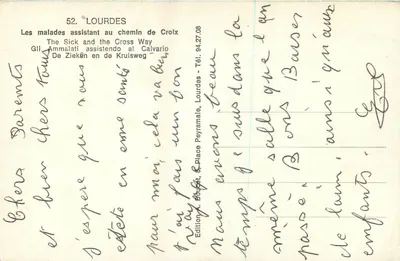 52. LOURDES
Les malades assistant au chemin de Croix
The Sick and the Cross Way
Gli Ammalati assistendo al Calvario
De Zieken en de Kruisweg
Chers Parents
et bien chers tous
j'espère que vous
en bonne santé
pour moi, cela va bien
j'ai fais un bon
voyage
Nous avons beau
temps je suis dans la
même salle que l'an
passé. Bons Baisers
de loin. ainsi qu'aux
enfants
Place Peyramale, Lourdes - Tél. 94.27.08